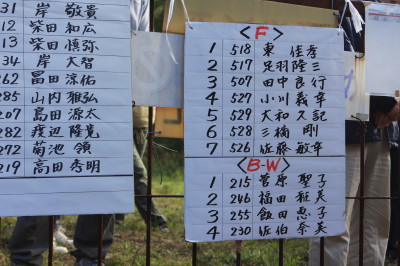 31 岸 敬貴
12 柴田 和広
13 柴田 慎弥
34 岸 大智
262 冨田 涼佑
285 山内 雅弘
207 島田 源太
282 渡辺 隆晃
272 菊池 領
219 高田 秀明
<F>
1 518 東 佳孝
2 517 足羽隆三
3 507 田中良行
4 527 小川義幸
5 529 大和久記
6 528 三橋 剛
7 526 佐藤敏幸
<B-W>
1 215 菅原 聖子
2 246 福田 雅美
3 255 飯田 恵子
4 230 佐伯奈美